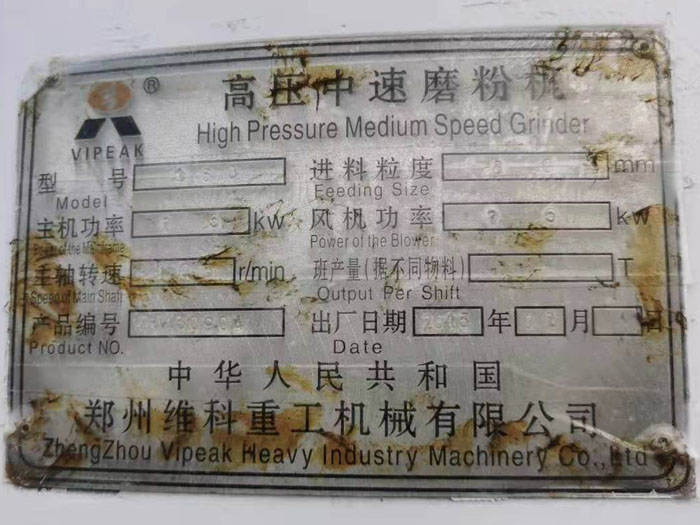 VIPEAK ®
高压中速磨粉机
High Pressure Medium Speed Grinder
型 号 进料粒度 mm
Model Feeding Size
主机功率 kw 风机功率 75 kw
Power of the Mainframe Power of the Blower
主轴转速 r/min 班产量(据不同物料) T
Speed of Main Shaft Output Per Shift
产品编号 出厂日期 年 月 日
Product NO. Date
中华人民共和国
郑州维科重工机械有限公司
ZhengZhou Vipeak Heavy Industry Machinery Co.,Ltd